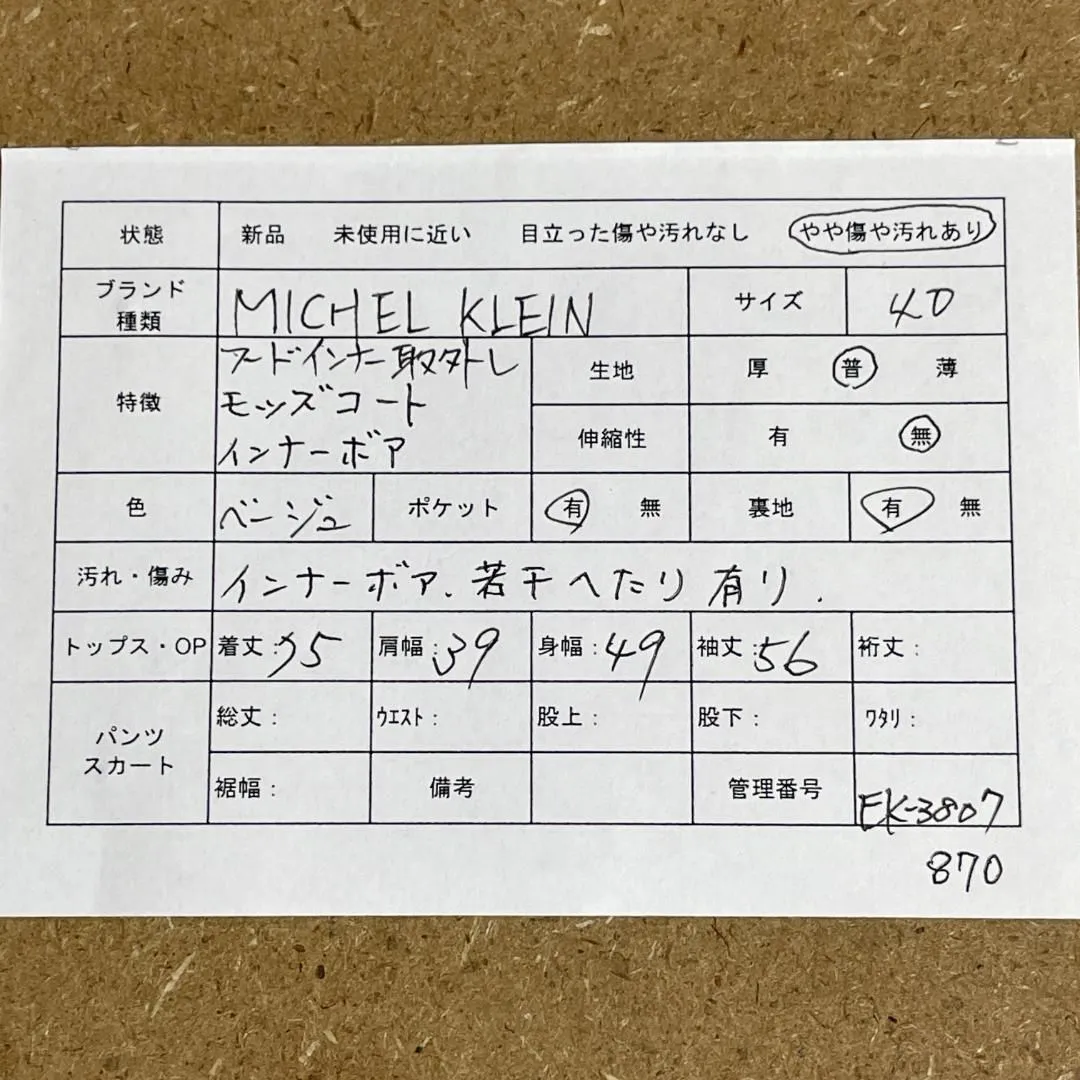 状態 新品 未使用に近い 目立った傷や汚れなし やや傷や汚れあり
ブランド 種類 MICHEL KLEIN サイズ 40
特徴 フードインナー取外し
モッズコート
インナーボア
生地 厚 普 薄
伸縮性 有 無
色 ベージュ ポケット 有 無 裏地 有 無
汚れ・傷み インナーボア、若干へたり有り.
トップス・OP 着丈:95 肩幅:39 身幅:49 袖丈:56 裄丈:
パンツ
スカート
総丈: ウエスト: 股上: 股下: ワタリ:
裾幅: 備考 管理番号 EK-3807
870